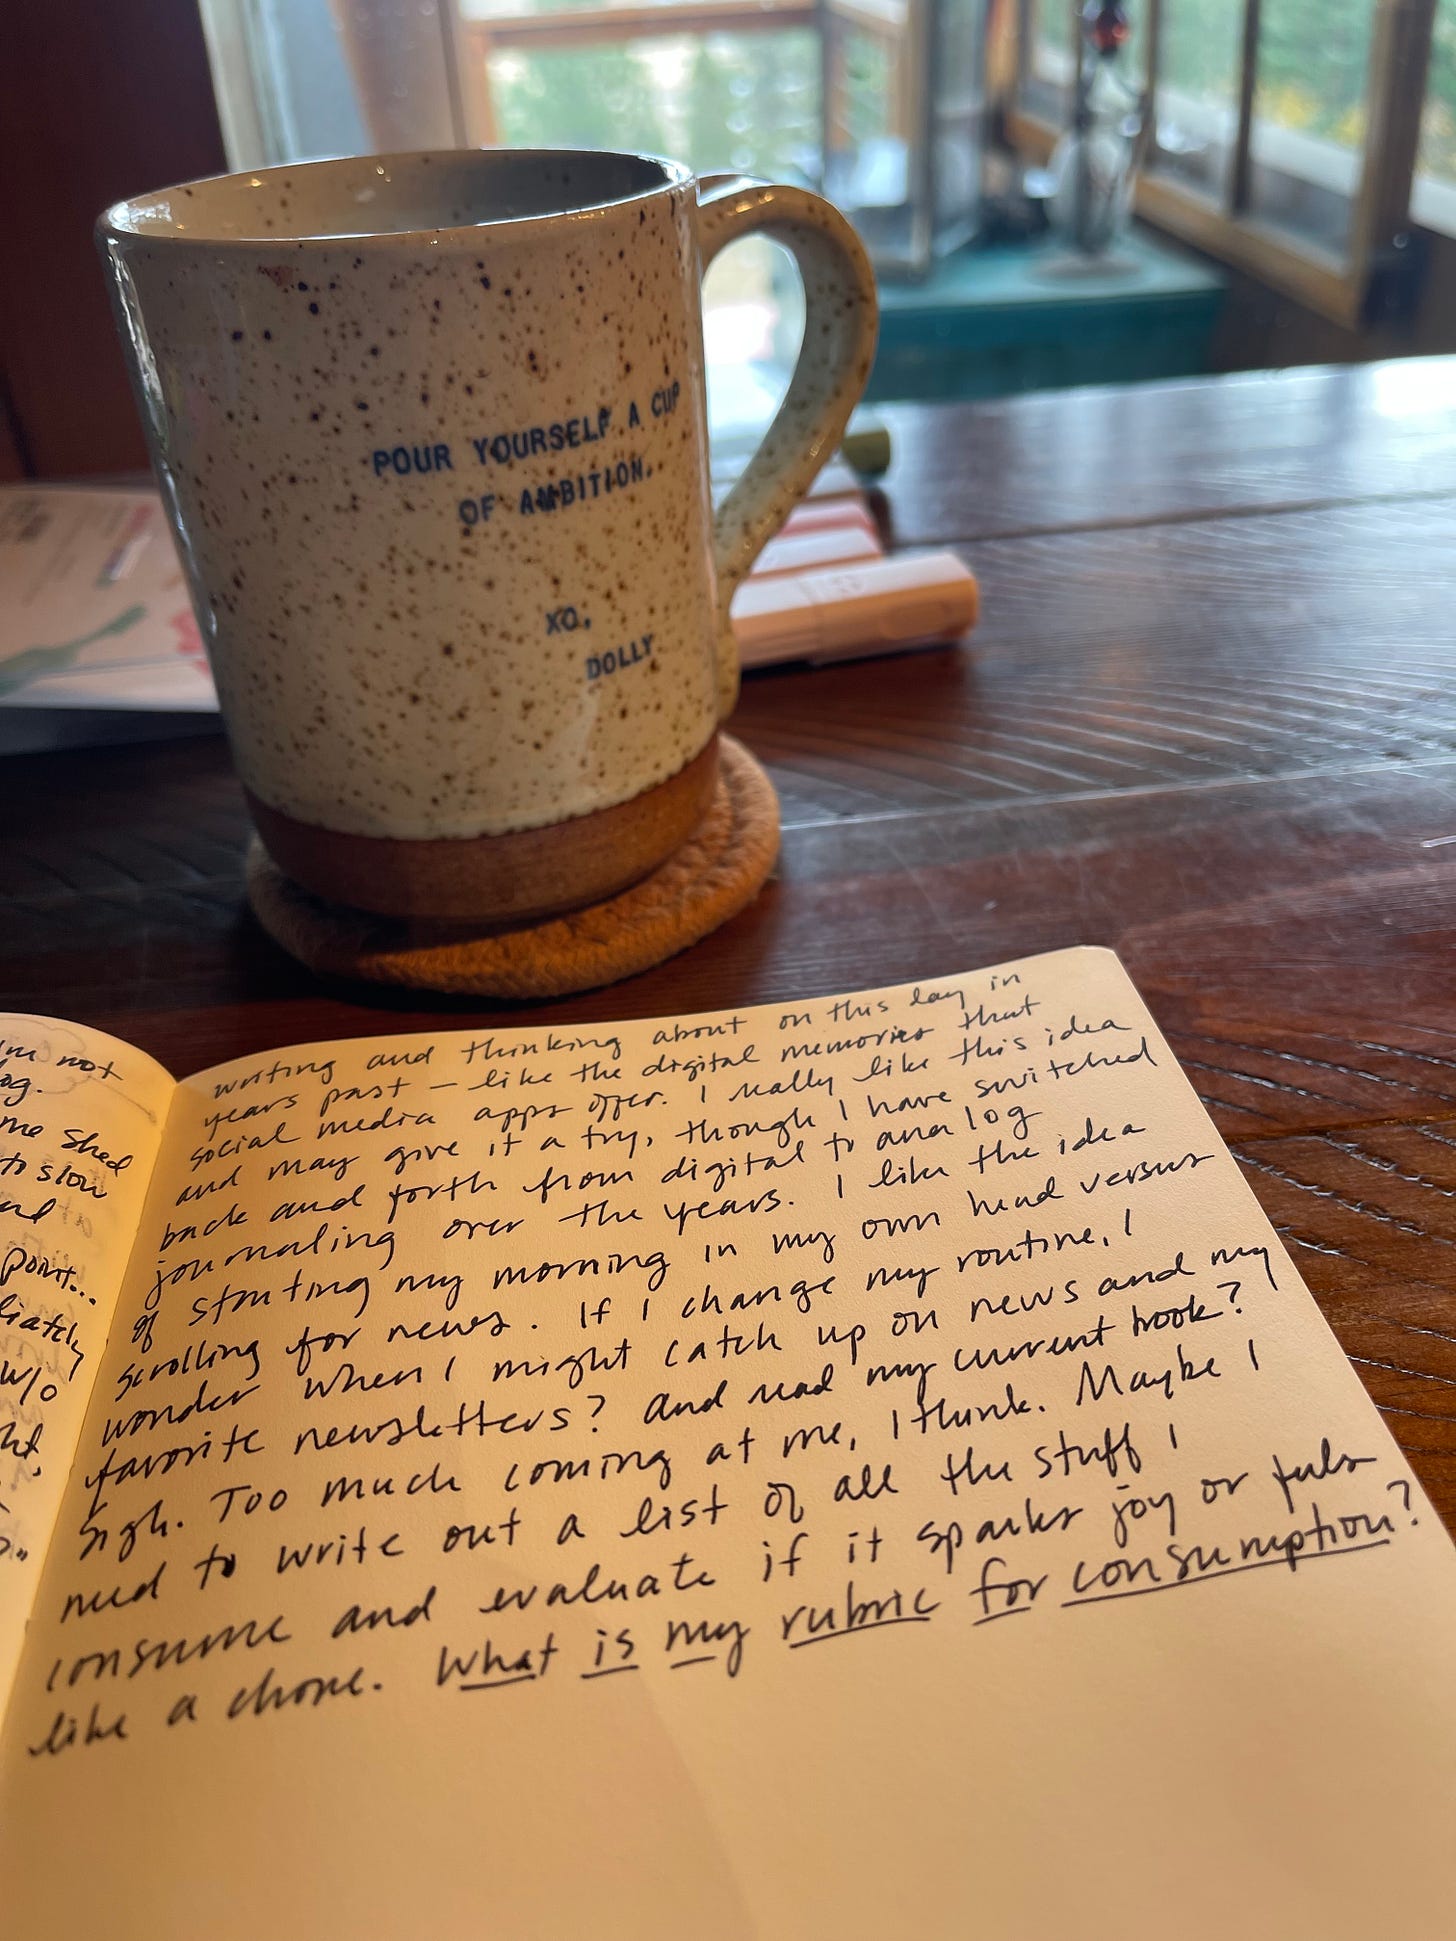 POUR YOURSELF A CUP
OF AMBITION.
XO,
DOLLY
not
me shed
to slow
point...
w/o
writing and thinking about on this day in
years past – like the digital memories that
social media apps offer. I really like this idea
and may give it a try, though I have switched
back and forth from digital to analog
journaling over the years. I like the idea
of starting my morning in my own head versus
scrolling for news. If I change my routine, I
wonder when I might catch up on news and my
favorite newsletters? And read my current book?
Sigh. Too much coming at me, I think. Maybe I
need to write out a list of all the stuff I
consume and evaluate if it sparks joy or feels
like a chore. What is my rubric for consumption?